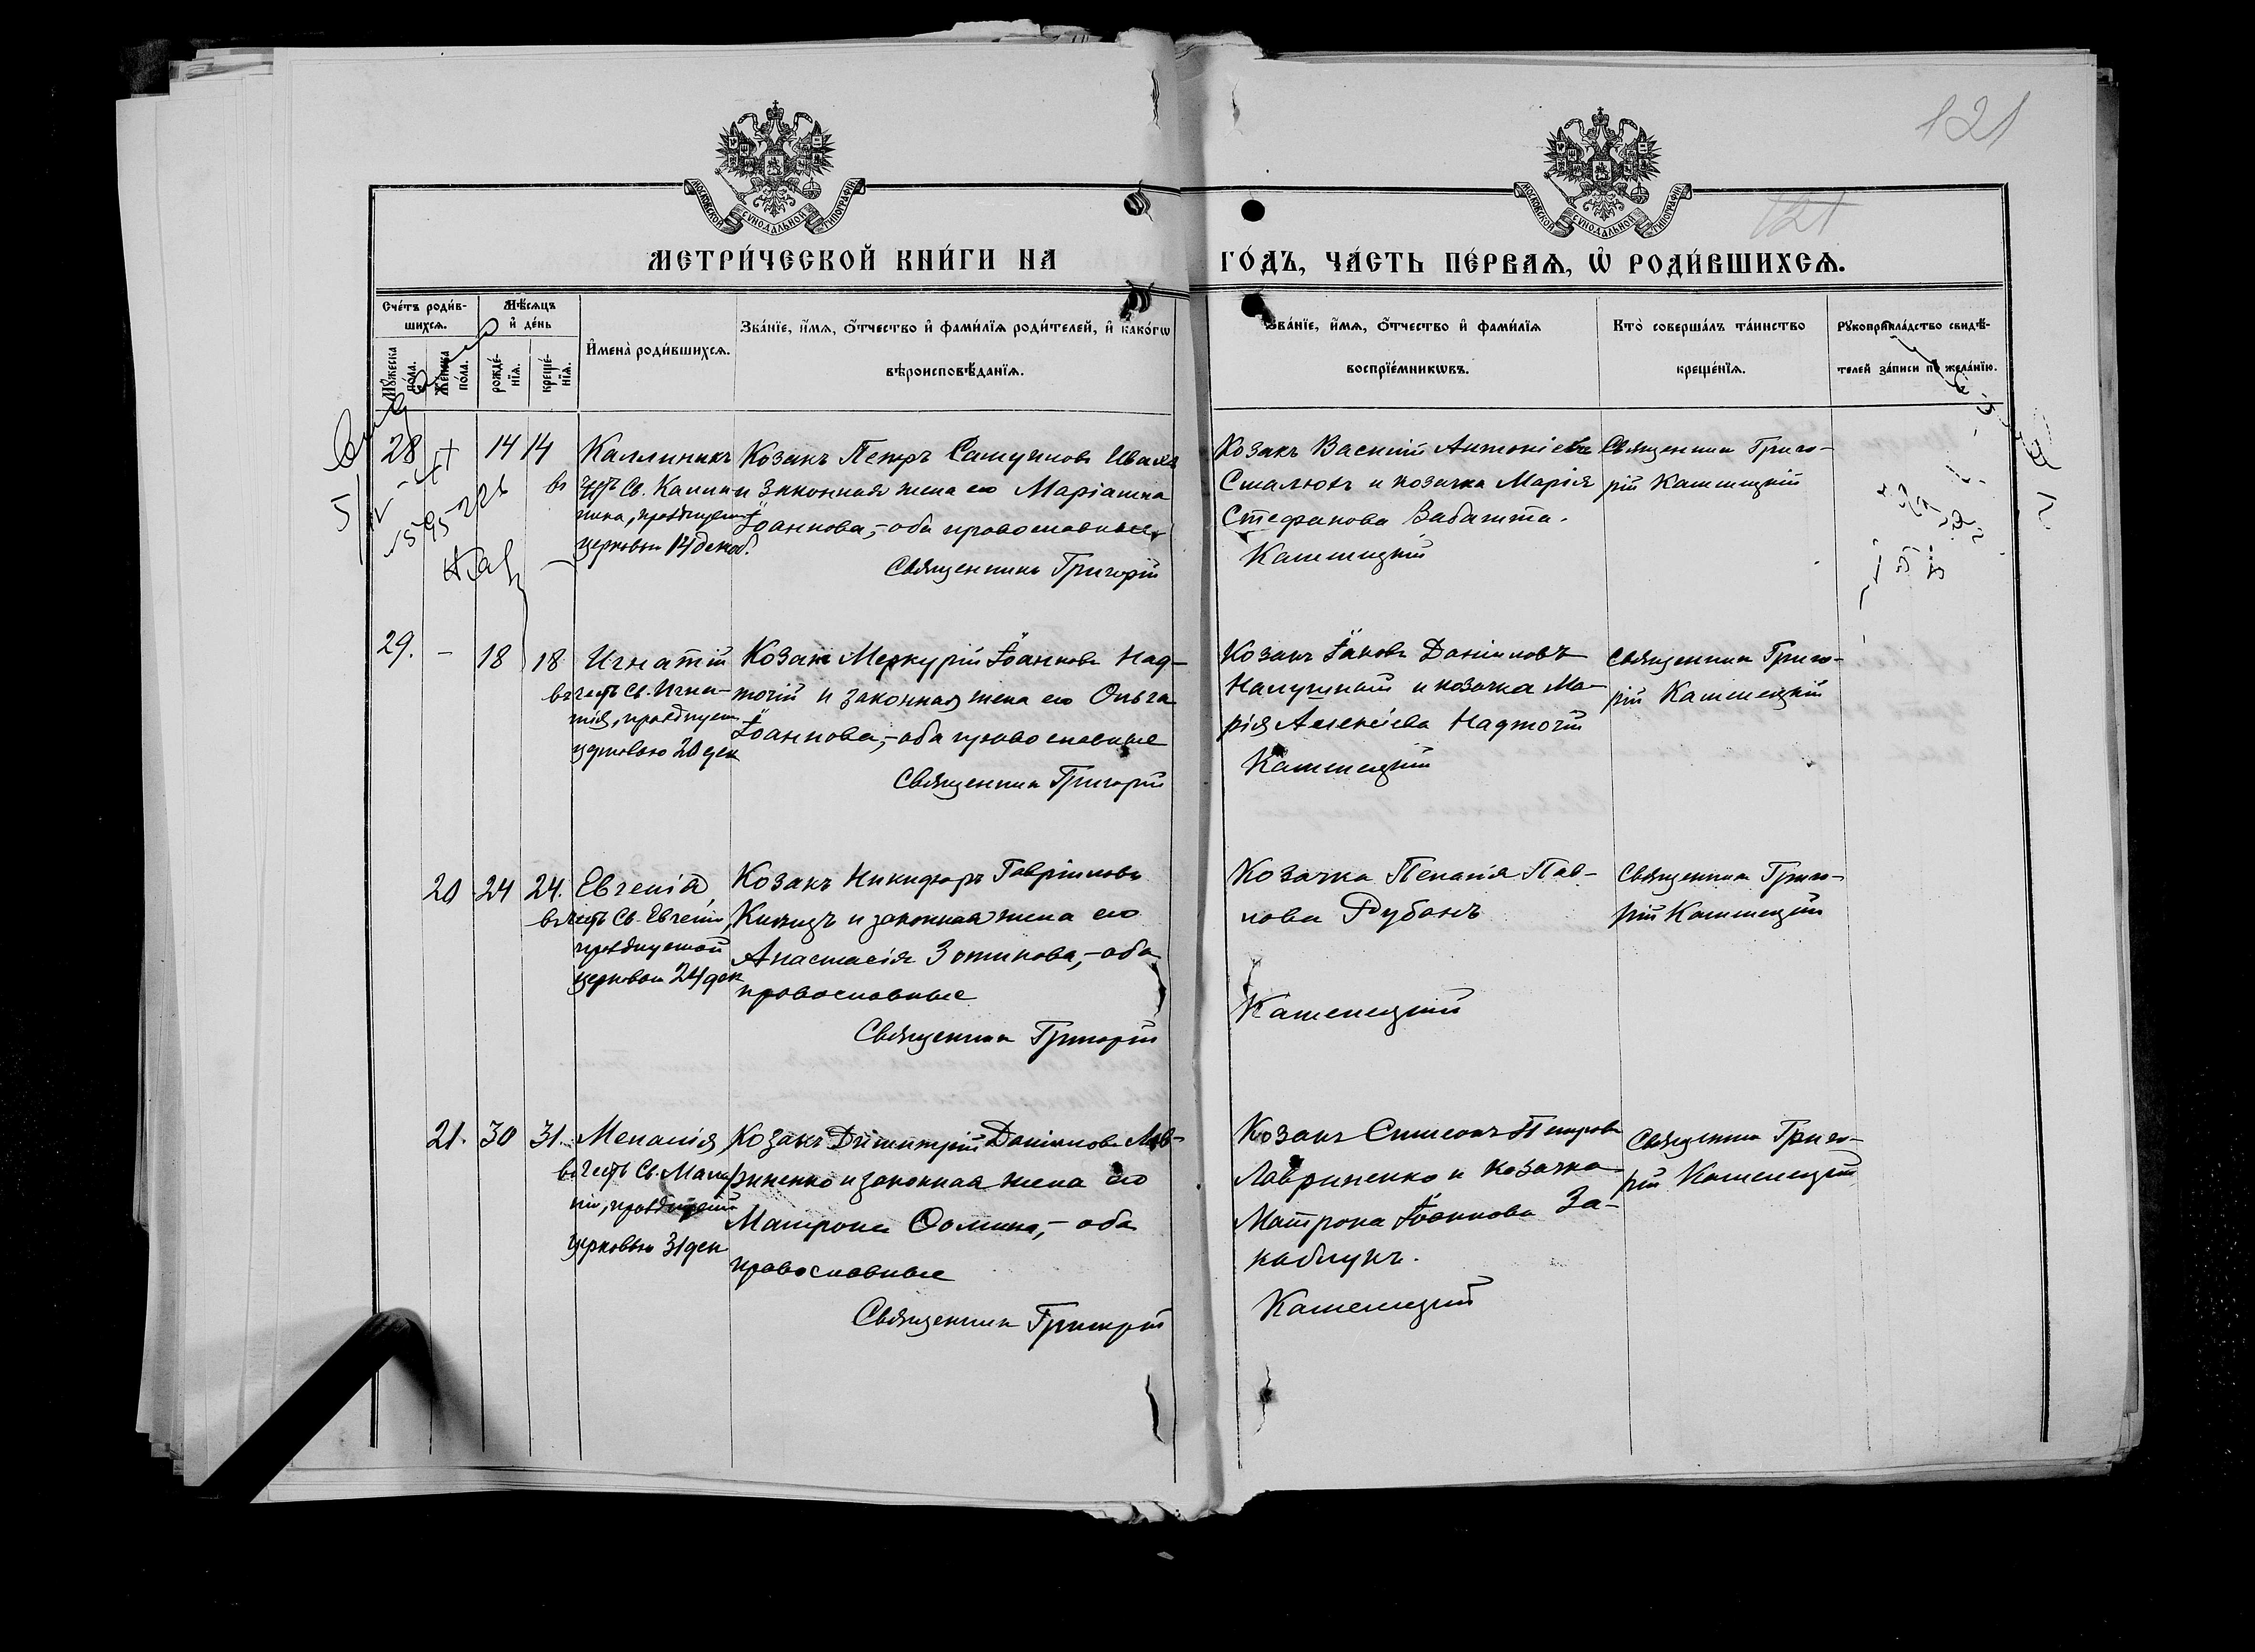 121
МОСКОВСКОЙ СѴНОДАЛЬНОЙ ТИПОГРАФІИ
МОСКОВСКОЙ СѴНОДАЛЬНОЙ ТИПОГРАФІИ
121
МЕТРИ́ЧЕСКОЙ КНИ́ГИ НА ГО́ДЪ, ЧА́СТЬ ПЕ́РВАѦ, Ѡ РОДИ́ВШИХСѦ.
Сче́тъ роди́в-
шихсѧ.
Мꙋ́жеска
по́ла.
Же́нска
по́ла.
Мѣ́сѧцъ
и҆ де́нь
рожде́-
нїѧ.
креще́-
нїѧ.
И҆мена̀ роди́вшихсѧ.
Зва́нїе, и҆́мѧ, ѻ҆́тчество и҆ фами́лїѧ роди́телей, и҆ како́гѡ
вѣроисповѣ́данїѧ.
Зва́нїе, и҆́мѧ, ѻ҆́тчество и҆ фами́лїѧ
воспрїе́мникѡвъ.
Кто̀ соверша́лъ та́инство
креще́нїѧ.
Рꙋкоприкла́дство свидѣ́-
телей за́писи по жела́нїю.
28
14 14
Каллиникъ
въ честь Св. Калли-
ника, празднуем.
церковью 14 декаб.
Козакъ Петръ Самуиловъ
и законная жена его Маріанна
Іоаннова,-оба православные
Священникъ Григорій
Козакъ Василій Антоніевъ
и козачка Марія
Стефанова
Кашмецкій
Священникъ Григо-
рій Кашмецкій
29. - 18 18
Игнатій
въ честь Св. Игна-
тія, празднуем
церковью 20 дек
Козакъ Меркурій Іоанновъ Над-
точій и законная жена его Ольга
Іоаннова,-оба православные
Священникъ Григорій
Козакъ Іаковъ Даніиловъ
и козачка Ма-
рія Алексіева Надточій
Кашмецкій
Священникъ Григо-
рій Кашмецкій
20 24 24.
Евгенія
въ честь Св. Евгеніи,
празднуемой
церковью 24 дек
Козакъ Никифоръ Гавріиловъ
и законная жена его
Анастасія Зотикова,-оба
православные
Священникъ Григорій
Козачка Пелагія Пав-
лова Рубанъ
Кашмецкій
Священникъ Григо-
рій Кашмецкій
21. 30 31.
Меланія
въ честь Св. Мела
ніи, празднуемой
церковью 31 дек
Козакъ Димитрій Даніиловъ Лав-
риненко и законная жена его
Матрона Ѳомина,-оба
православные
Священникъ Григорій
Козакъ Симеонъ Петровъ
Лавриненко и козачка
Матрона Іоаннова За-
каблукъ.
Кашмецкій
Священникъ Григо-
рій Кашмецкій